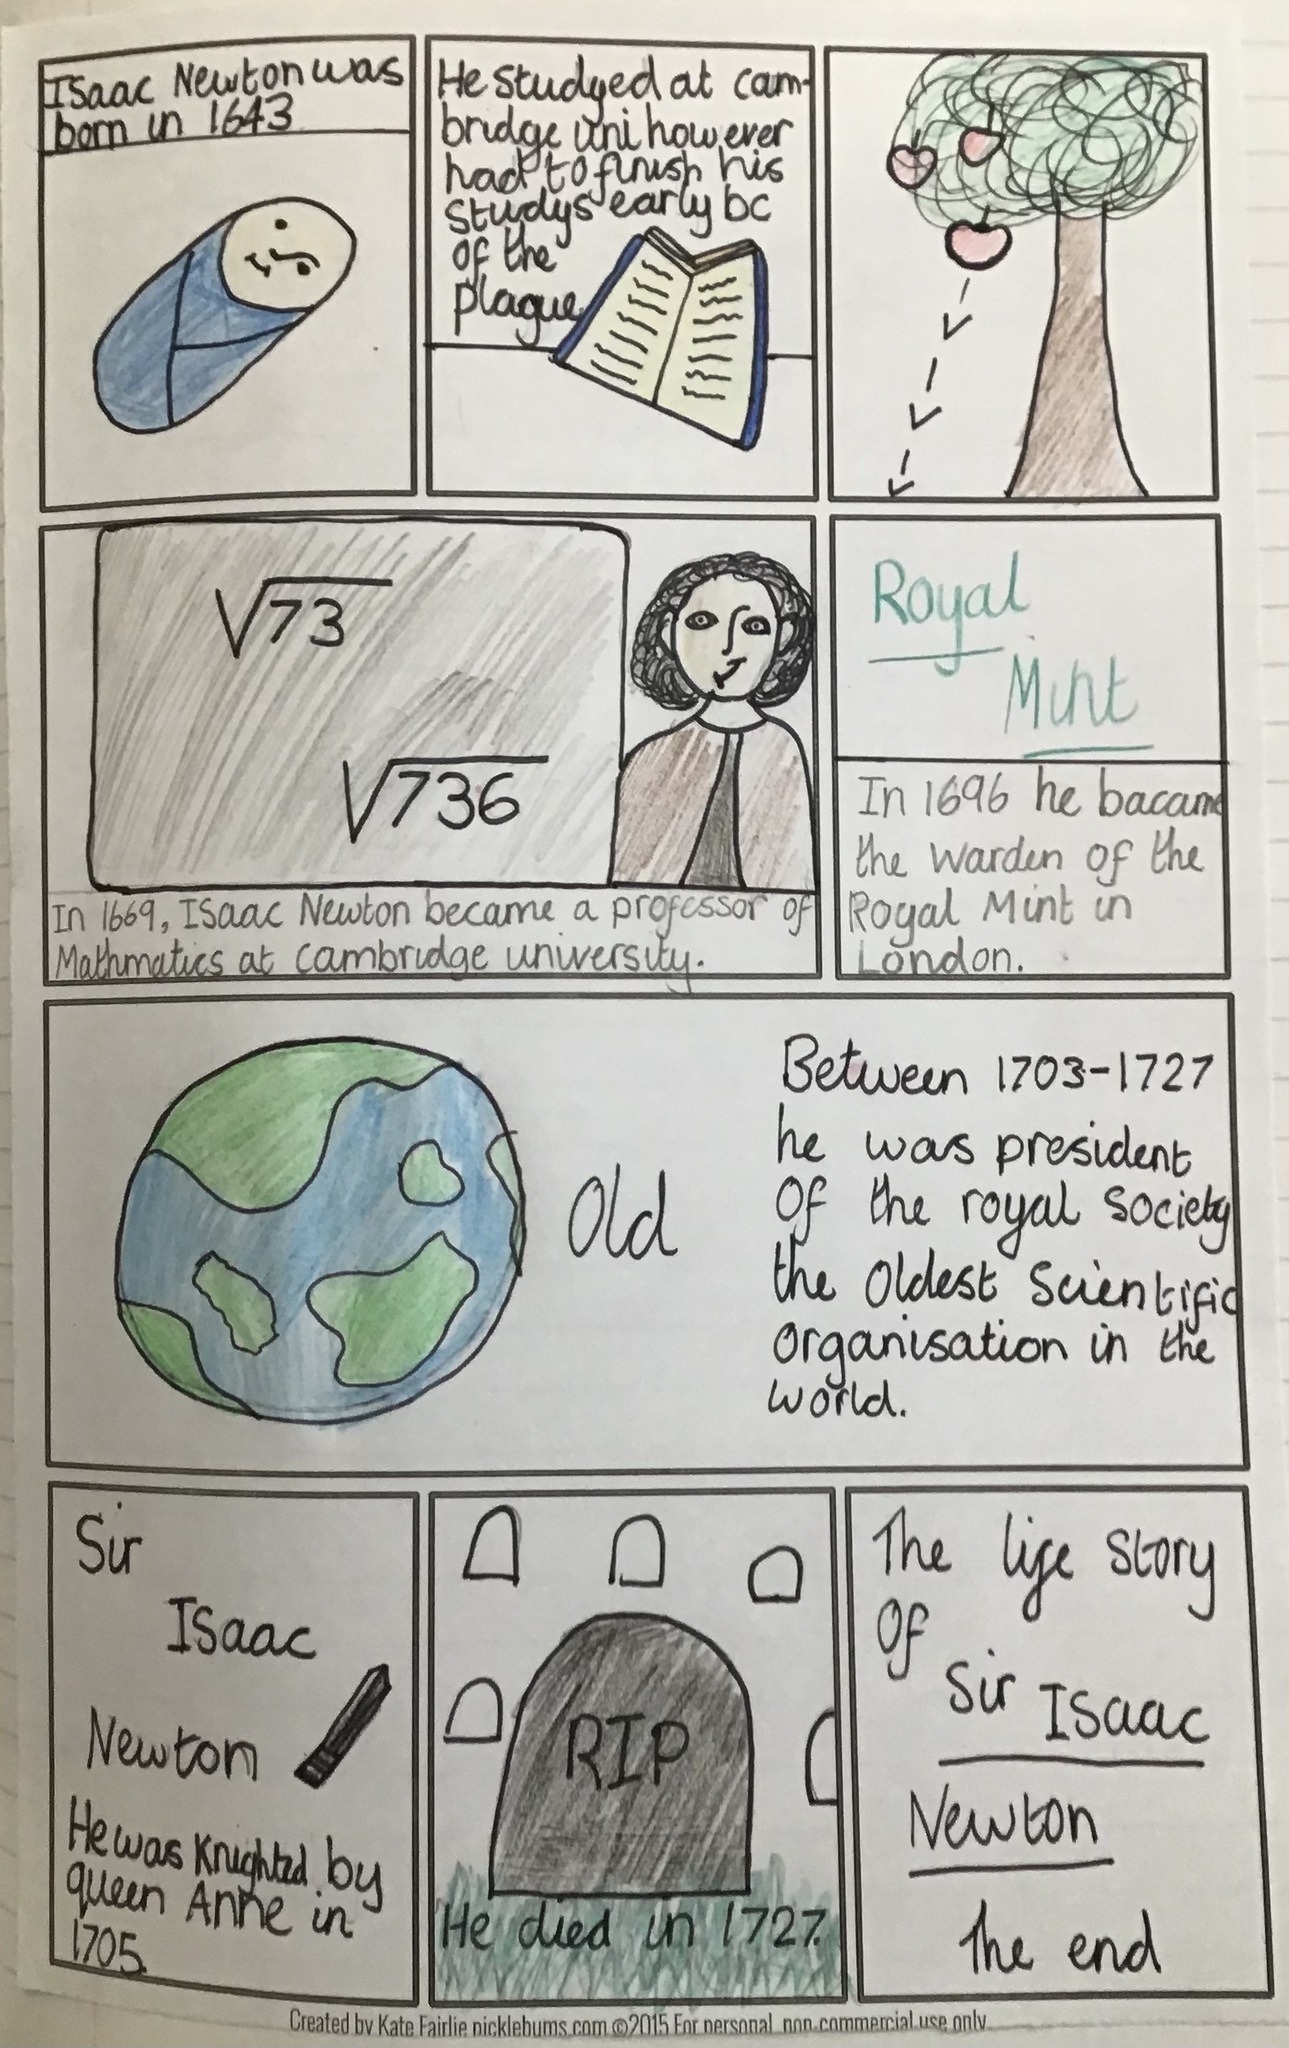 Isaac Newton was
born in 1643
He studyed at cam-
bridge uni however
had to finish his
studys early bc
of the
plague
√73
√736
In 1669, Isaac Newton became a professor of
Mathmatics at cambridge university.
Royal
Mint
In 1696 he bacame
the warden of the
Royal Mint in
London.
Old
Between 1703-1727
he was president
of the royal society
the oldest scientific
organisation in the
world.
Sir
Isaac
Newton
He was Knighted by
queen Anne in
1705.
RIP
He died in 1727.
The life story
of
Sir Isaac
Newton
The end
Created by Kate Fairlie picklebums.com ©2015 For personal, non-commercial use only